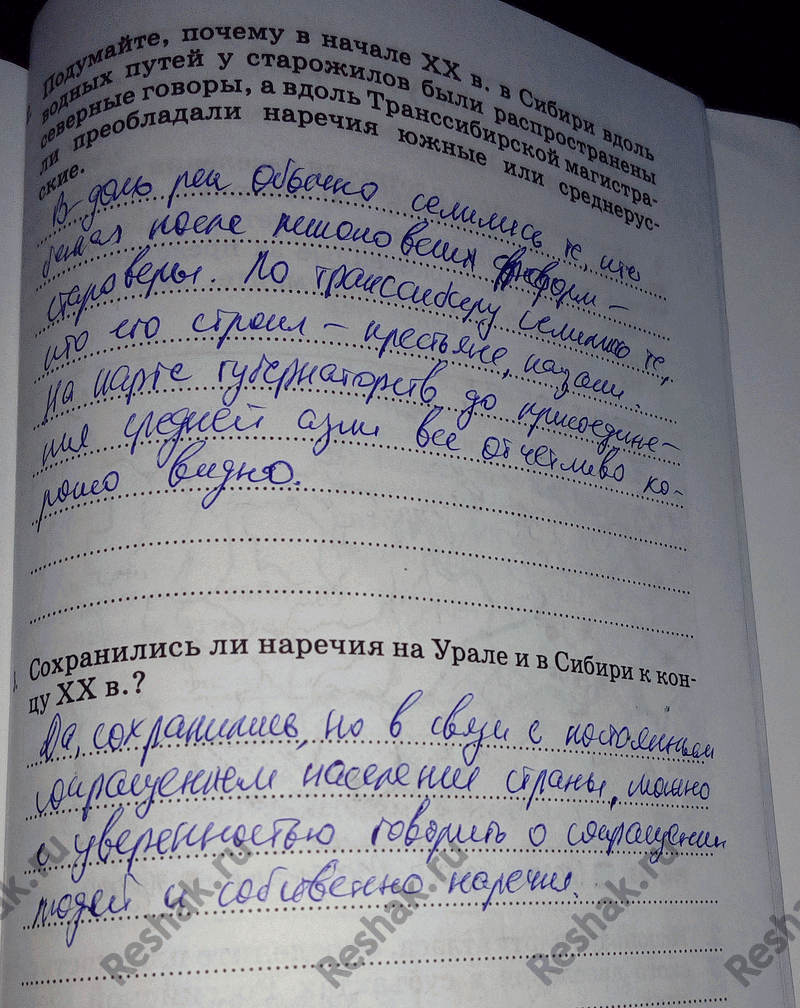 Подумайте, почему в начале XX в. в Сибири вдоль
водных путей у старожилов были распространены
северные говоры, а вдоль Транссибирской магистра-
ли преобладали наречия южные или среднерус-
ские.
В доль рек обычно селились те, кто
бежал после
староверы. По транссибиру селились те,
кто его строил – крестьяне, казаки.
На карте губернаторств до присоедине-
ния средней азии все отчетливо хо-
рошо видно.
Сохранились ли наречия на Урале и в Сибири к кон-
цу XX в.?
Да, сохранились, но в связи с постоянным
сокращением населения страны, можно
с уверенностью говорить о сокращении
людей и собственно наречия.
Reshak.ru
Reshak.ru
Reshak.ru
Reshak.ru